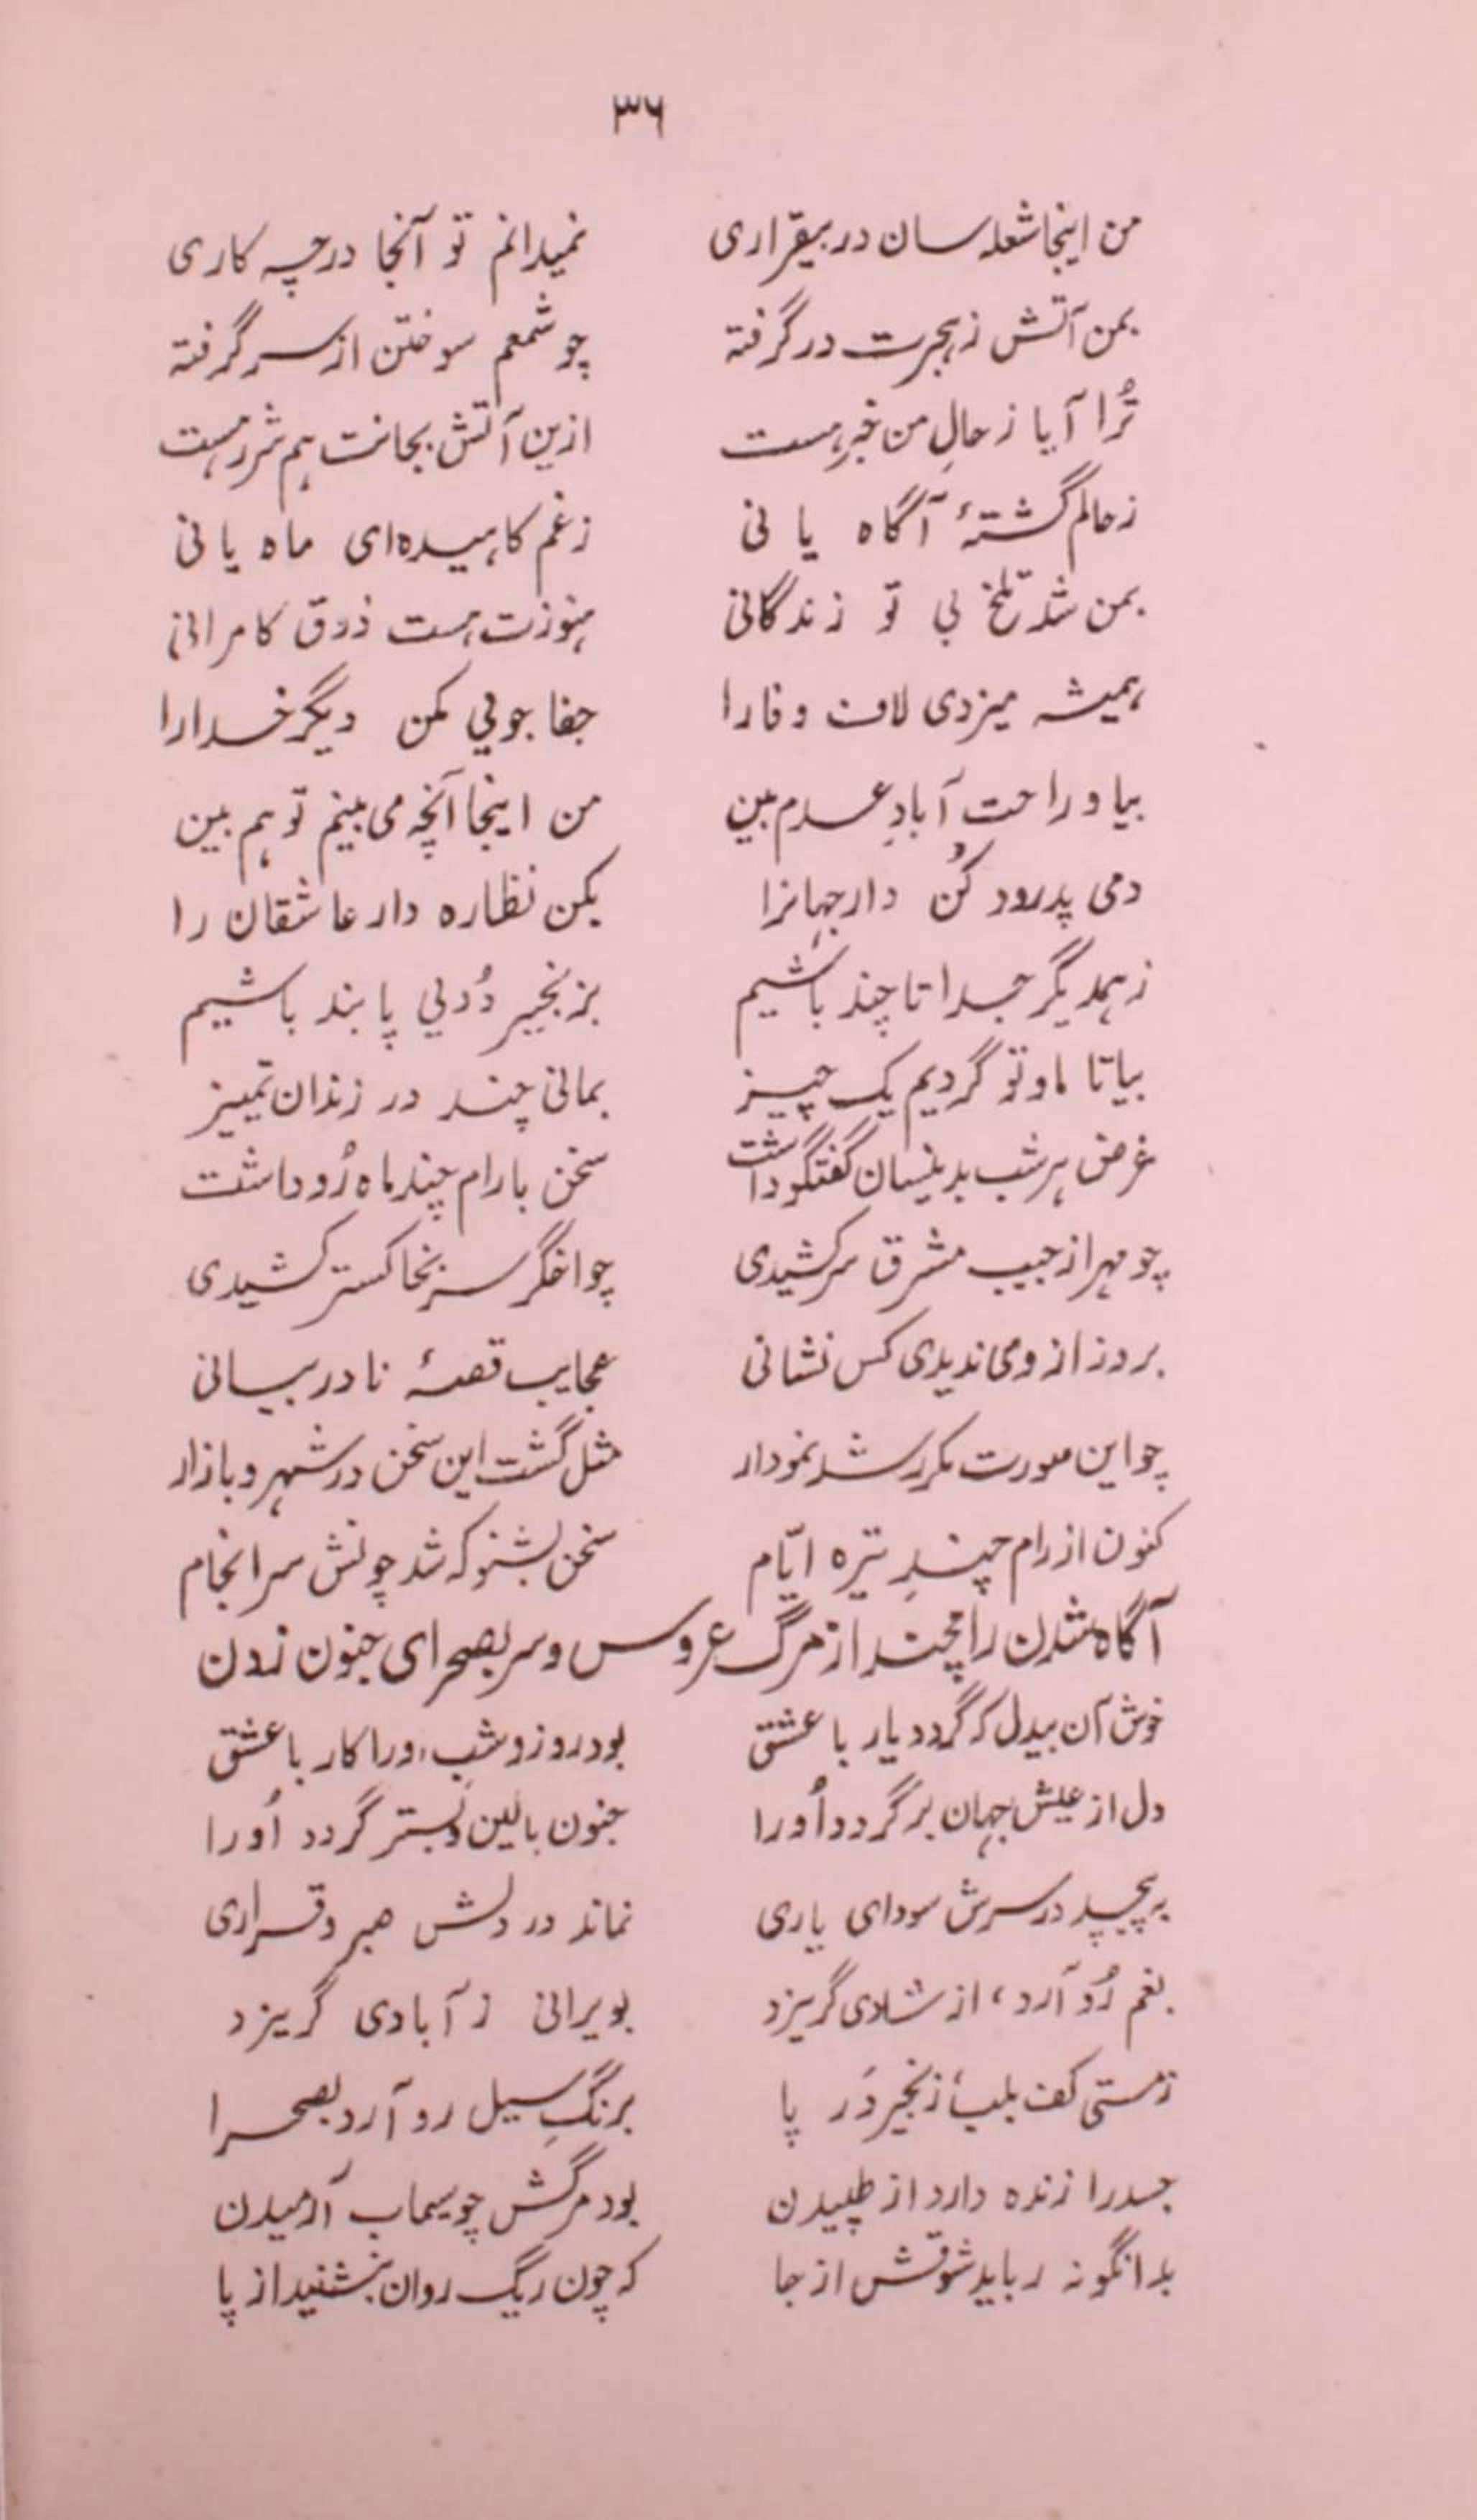 ۳۶
من اینجا شعله سان در بیقراری نمیدانم تو آنجا در چه کاری
بمن آتش ز هجرت در گرفته چو شمعم سوختن از سر گرفته
تُرا آیا ز حالِ من خبر هست ازین آتش بجانت هم شرر هست
ز حالم گشتهٔ آگاه یا نی ز غم کاهیده‌ای ماه یا نی
بمن شد تلخ بی تو زندگانی هنوزت هست ذوق کامرانی
همیشه میزدی لاف وفا را جفا جویی مکن دیگر خدا را
بیا و راحت آبادِ عدم بین من اینجا آنچه می بینم تو هم بین
دمی پدرود کُن دار جهانرا بکن نظاره دار عاشقان را
ز همدیگر جدا تا چند باشیم بزنجیر دُویی پابند باشیم
بیا تا ما و تو گردیم یک چیز بمانی چند در زندان تمییز
غرض هر شب بدینسان گفتگو داشت سخن با رام چند ماه رُو داشت
چو مهر از جیب مشرق سر کشیدی چو اخگر سر بخاکستر کشیدی
بروز از وی ندیدی کس نشانی عجایب قصهٔ نادر بیانی
چو این صورت مکرر شد نمودار مثل گشت این سخن در شهر و بازار
کنون از رام چندِ تیره ایّام سخن بشنو که شد چونش سرانجام
آگاه شدن رامچند از مرگ عروس و سر بصحرای جنون زدن
خوش آن بیدل که گردد یار با عشق بود روز و شب، او را کار با عشق
دل از عیش جهان بر گردد اُو را جنون بالین و بستر گردد اُو را
بپیچد در سرش سودای یاری نماند در دلش صبر و قراری
بغم رُو آرد، از شادی گریزد بویرانی ز آبادی گریزد
ز مستی کف بلب زنجیر دَر پا برنگِ سیل رو آرد بصحرا
جسد را زنده دارد از طپیدن بود مرگش چو سیماب آرمیدن
بدانگونه رباید شوقش از جا که چون ریگ روان ننشنید از پا